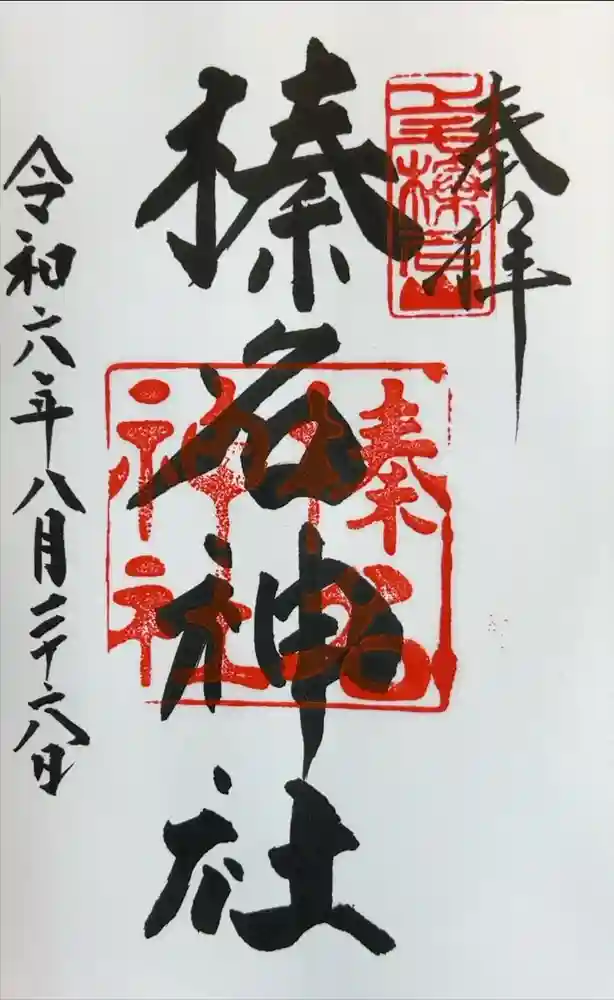 奉拝
榛名神社
榛名
神社
令和六年八月二十六日